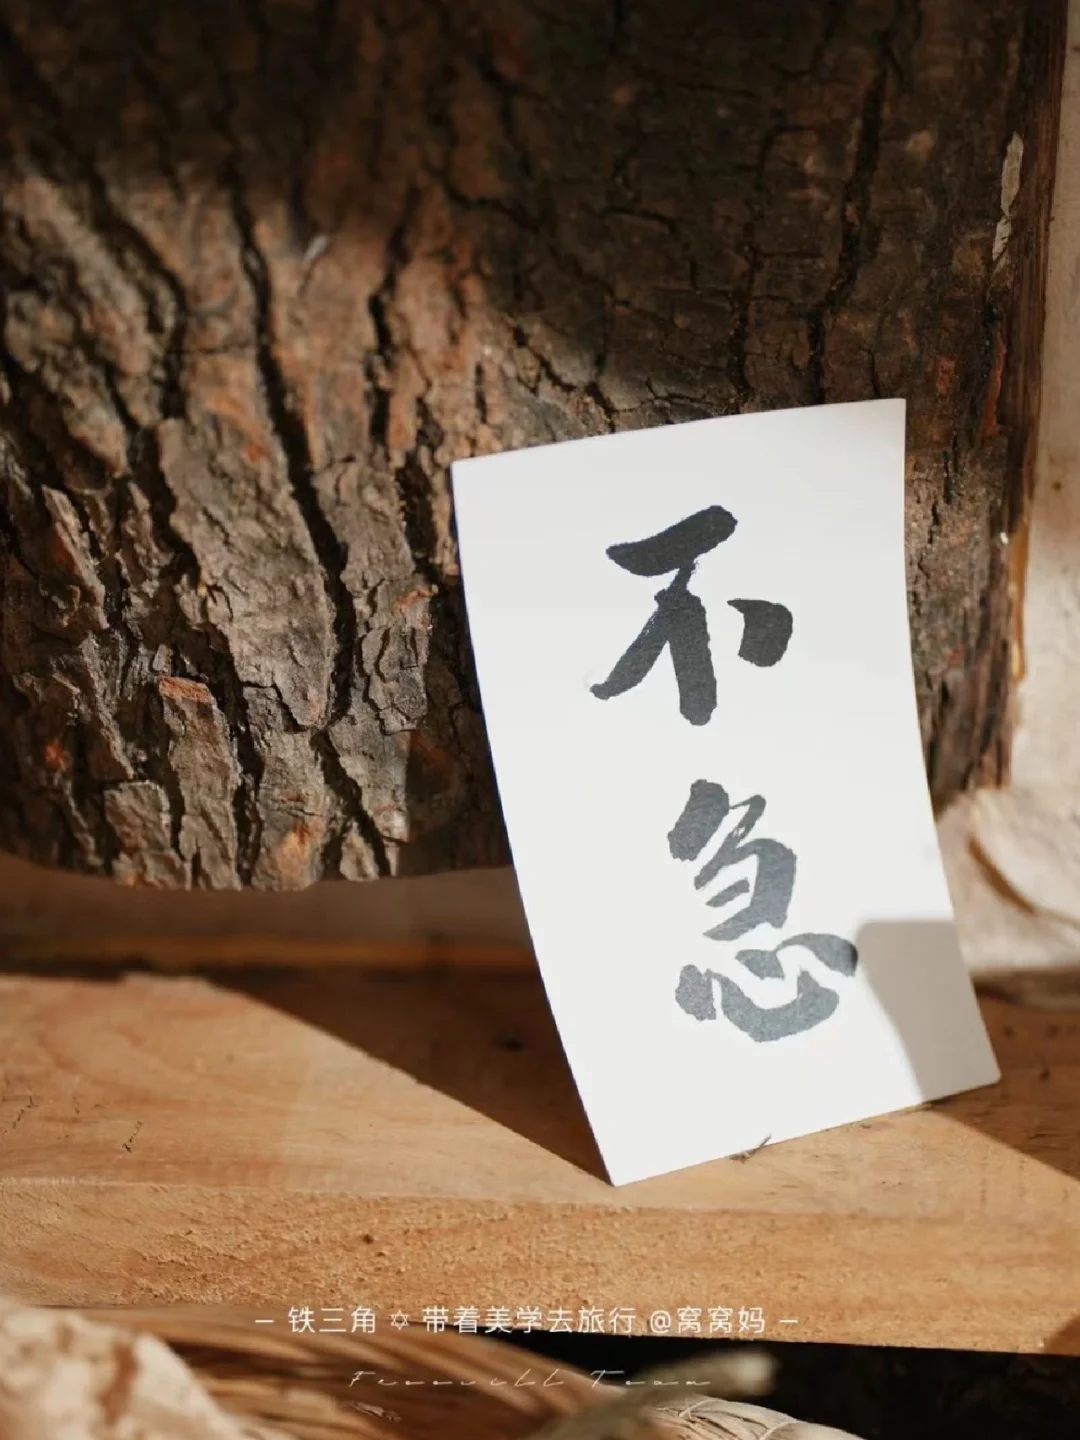 不急
— 铁三角 ✡ 带着美学去旅行 @窝窝妈 —